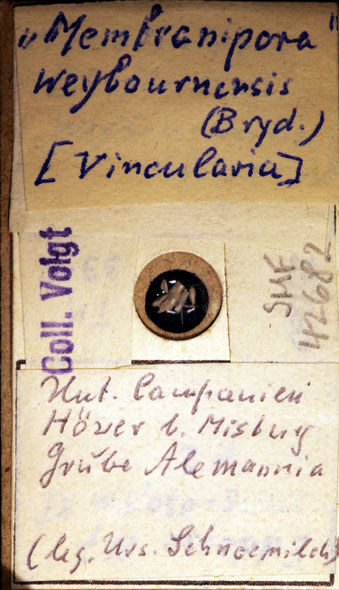 „Membranipora“
weybournensis
(Bryd.)
[Vincularia]
Coll. Voigt
SMF
42682
Unt. Campanien
Höver b. Misburg
Grube Alemannia
(leg. Urs. Schneemilch)